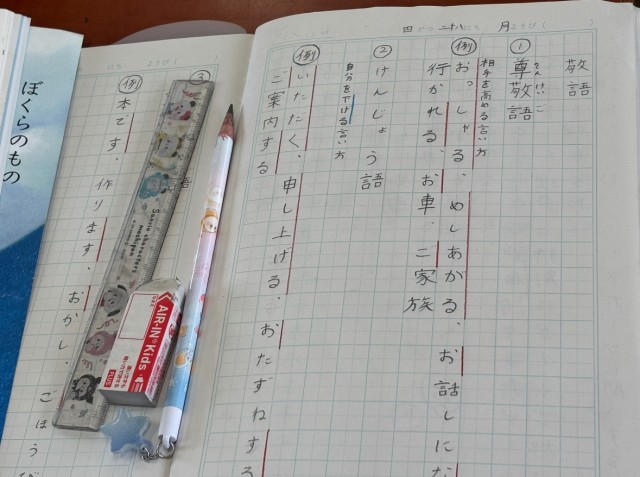 四 がつ 二十八 にち 月 ようび
敬語
そんけいご
①尊敬語
相手を高める言い方
例 おっしゃる、めしあがる、お話しにな
行かれる、お車、ご家族
②けんじょう語
自分を下げる言い方
例 いただく、申し上げる、おたずねする
ご案内する
にち ようび
③
語
例 本です、作ります、おかし、ごほうび
ぼくらのもの
Sanrio characters
AIR-IN Kids
PLUS